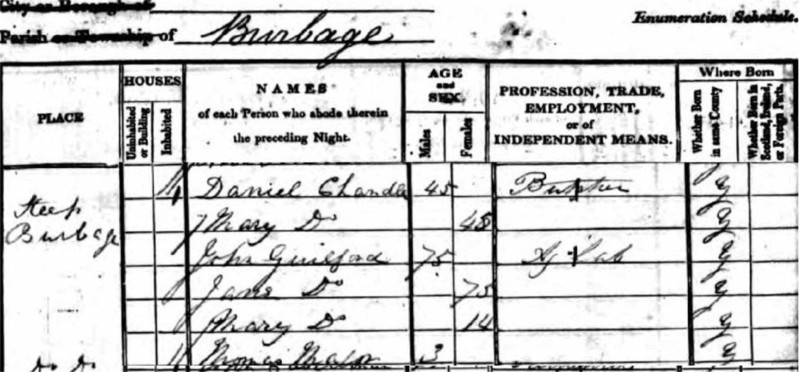 City or Borough of
Parish or Township of Burbage
Enumeration Schedule.
PLACE
HOUSES
Uninhabited or Building
Inhabited
NAMES
of each Person who abode therein
the preceding Night.
AGE
and
SEX
Males
Females
PROFESSION, TRADE,
EMPLOYMENT,
or of
INDEPENDENT MEANS.
Where Born
Whether Born in same County
Whether Born in Scotland, Ireland, or Foreign Parts.
Steep 1 Daniel Chandler 45 Y
Burbage Mary Do 45 Y
John Guilford 75 Ag Lab Y
Jane Do 75 Y
Mary Do 14 Y
Do Do 1 Thomas 3 Y